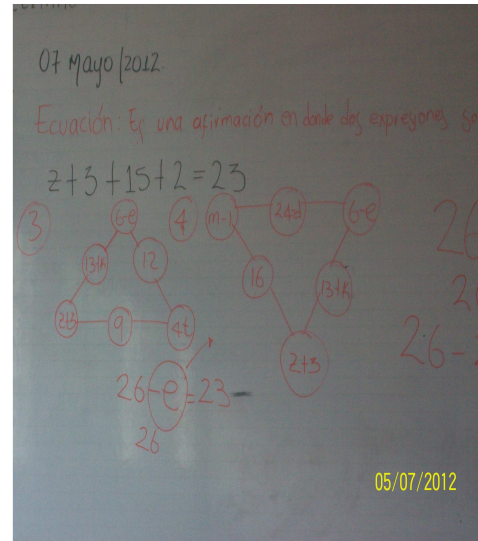 07 Mayo/2012.
Ecuación: Es una afirmación en donde dos expresiones so
z+3+15+2=23
3
6-e
13+k
12
z+3
9
4t
4
m-1
2+d
6-e
16
13+k
z+3
26-e=23-
26
26
2
26-
05/07/2012